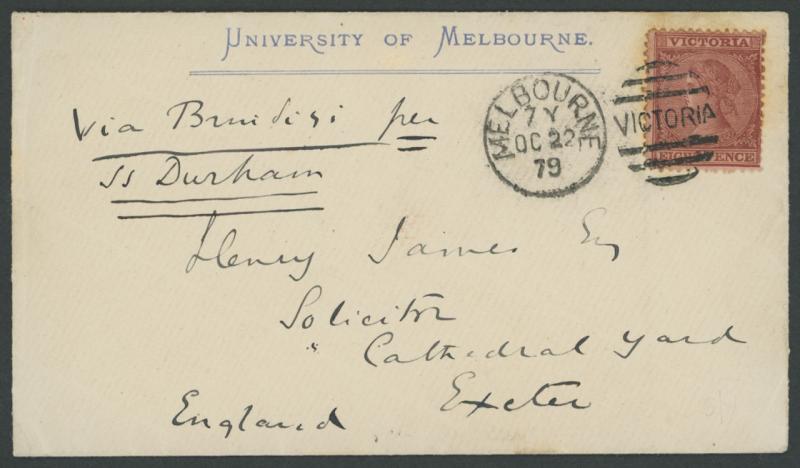 UNIVERSITY OF MELBOURNE.
VICTORIA
EIGHT PENCE
MELBOURNE
7 Y
OC 22
79
VICTORIA
Via Brindisi per
SS Durham
Henry James Esq
Solicitor
Cathedral Yard
Exeter
England